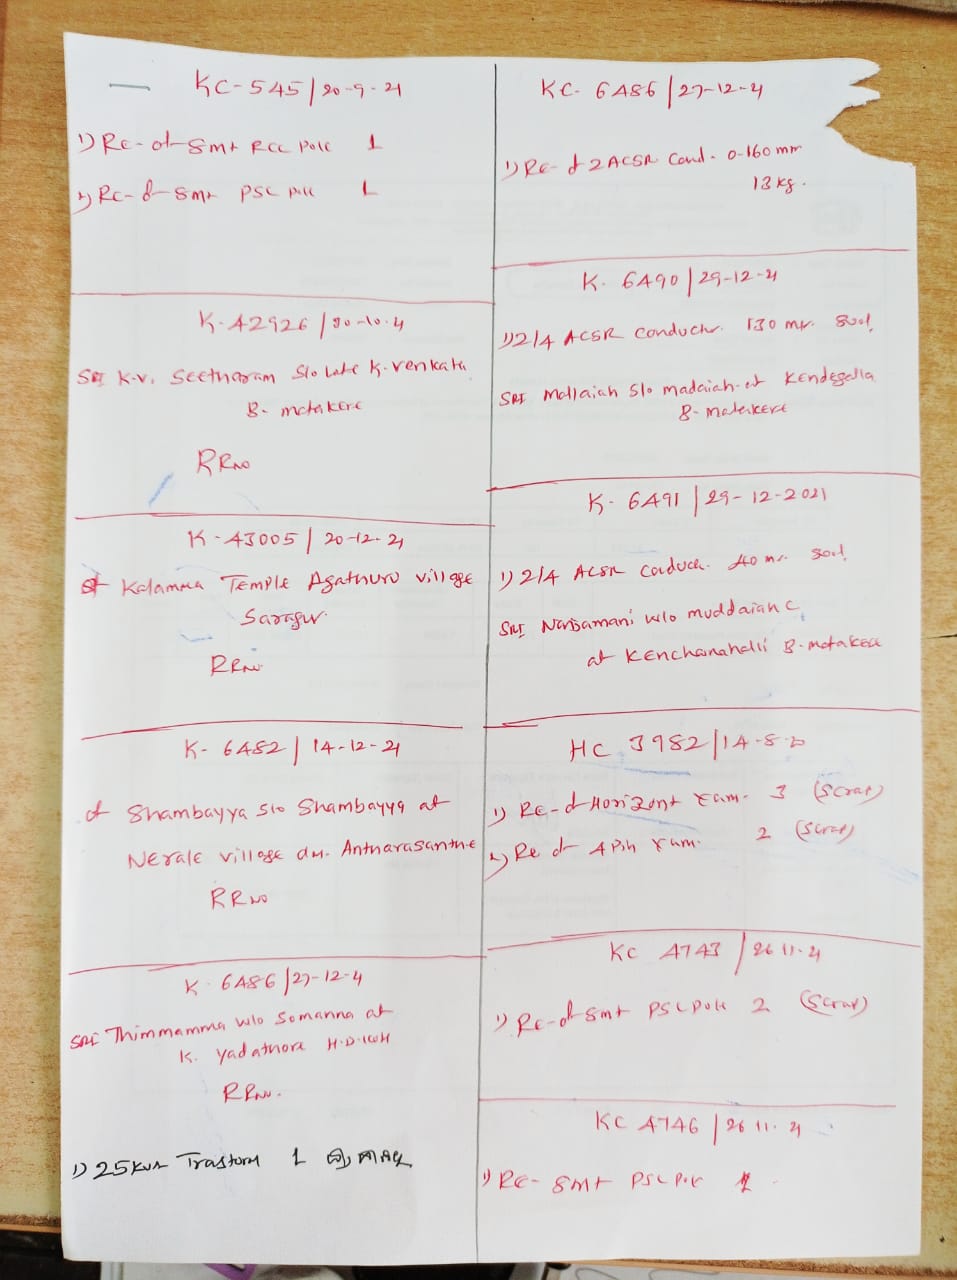 KC-545 | 20-9-21
1) Re-of 8mt RCC Pole 1
2) Re-of 8mt PSC Pole 1
K-42926 | 30-10-21
SRI K.V. Seetharam S/o Late K. Venkata
B-matakere
RRNO
K-43005 | 20-12-21
of Kalamma Temple Agathuru village
Saragur.
RRNo.
K-6482 | 14-12-21
of Shambayya S/o Shambayya at
Nerale village Antharasanthe
RRNO
K-6486 | 27-12-21
SRI Thimmamma W/o Somanna at
K. Yadathore H.D.
RRNo.
1) 25KVA 1
KC-6486 | 27-12-21
1) Re-of 2 ACSR Cond. 0-160 mm
13 kg.
K-6490 | 29-12-21
1) 2/4 ACSR Conductr. 130 mr.
SRI Mallaiah S/o madaiah at Kendegalla
B-matakere
K-6491 | 29-12-2021
1) 2/4 ACSR Conducr. 40 mr.
SRI W/o muddaiah C
at Kenchanahalli B-matakere
HC 3982 | 14-8-20
1) Re-of Horizont Xam- 3 (Scrap)
2) Re of 4 Pin Xam. 2 (Scrap)
KC 4743 | 26 11-21
1) Re-of 8mt PSC Pole 2 (Scrap)
KC 4746 | 26 11-21
1) Re- 8mt PSC 1